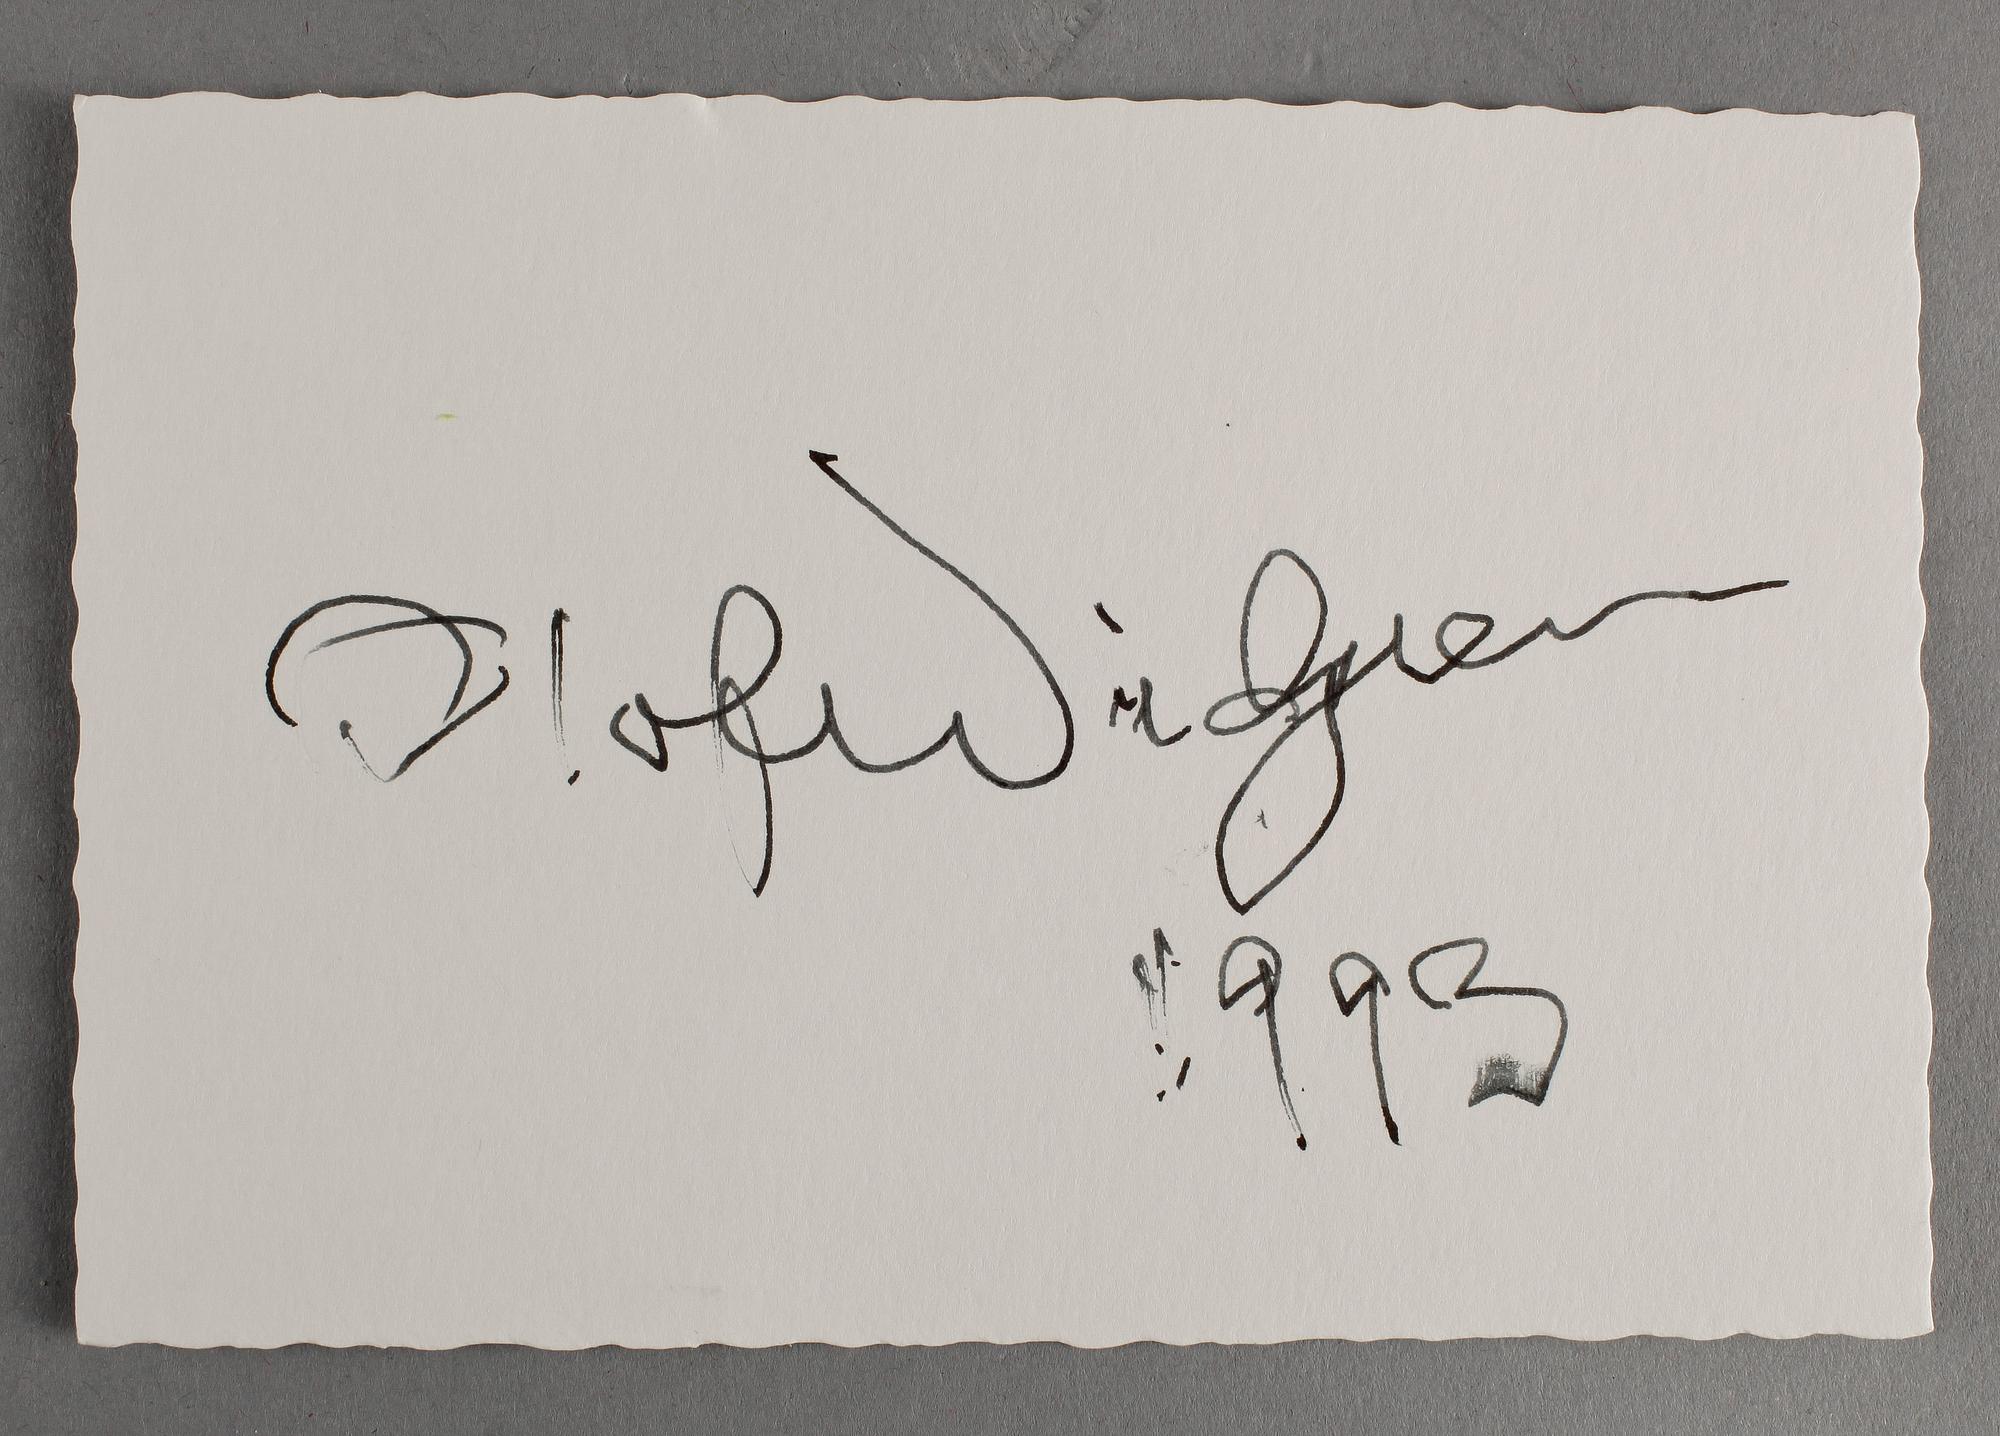 Olof Widgren
1993